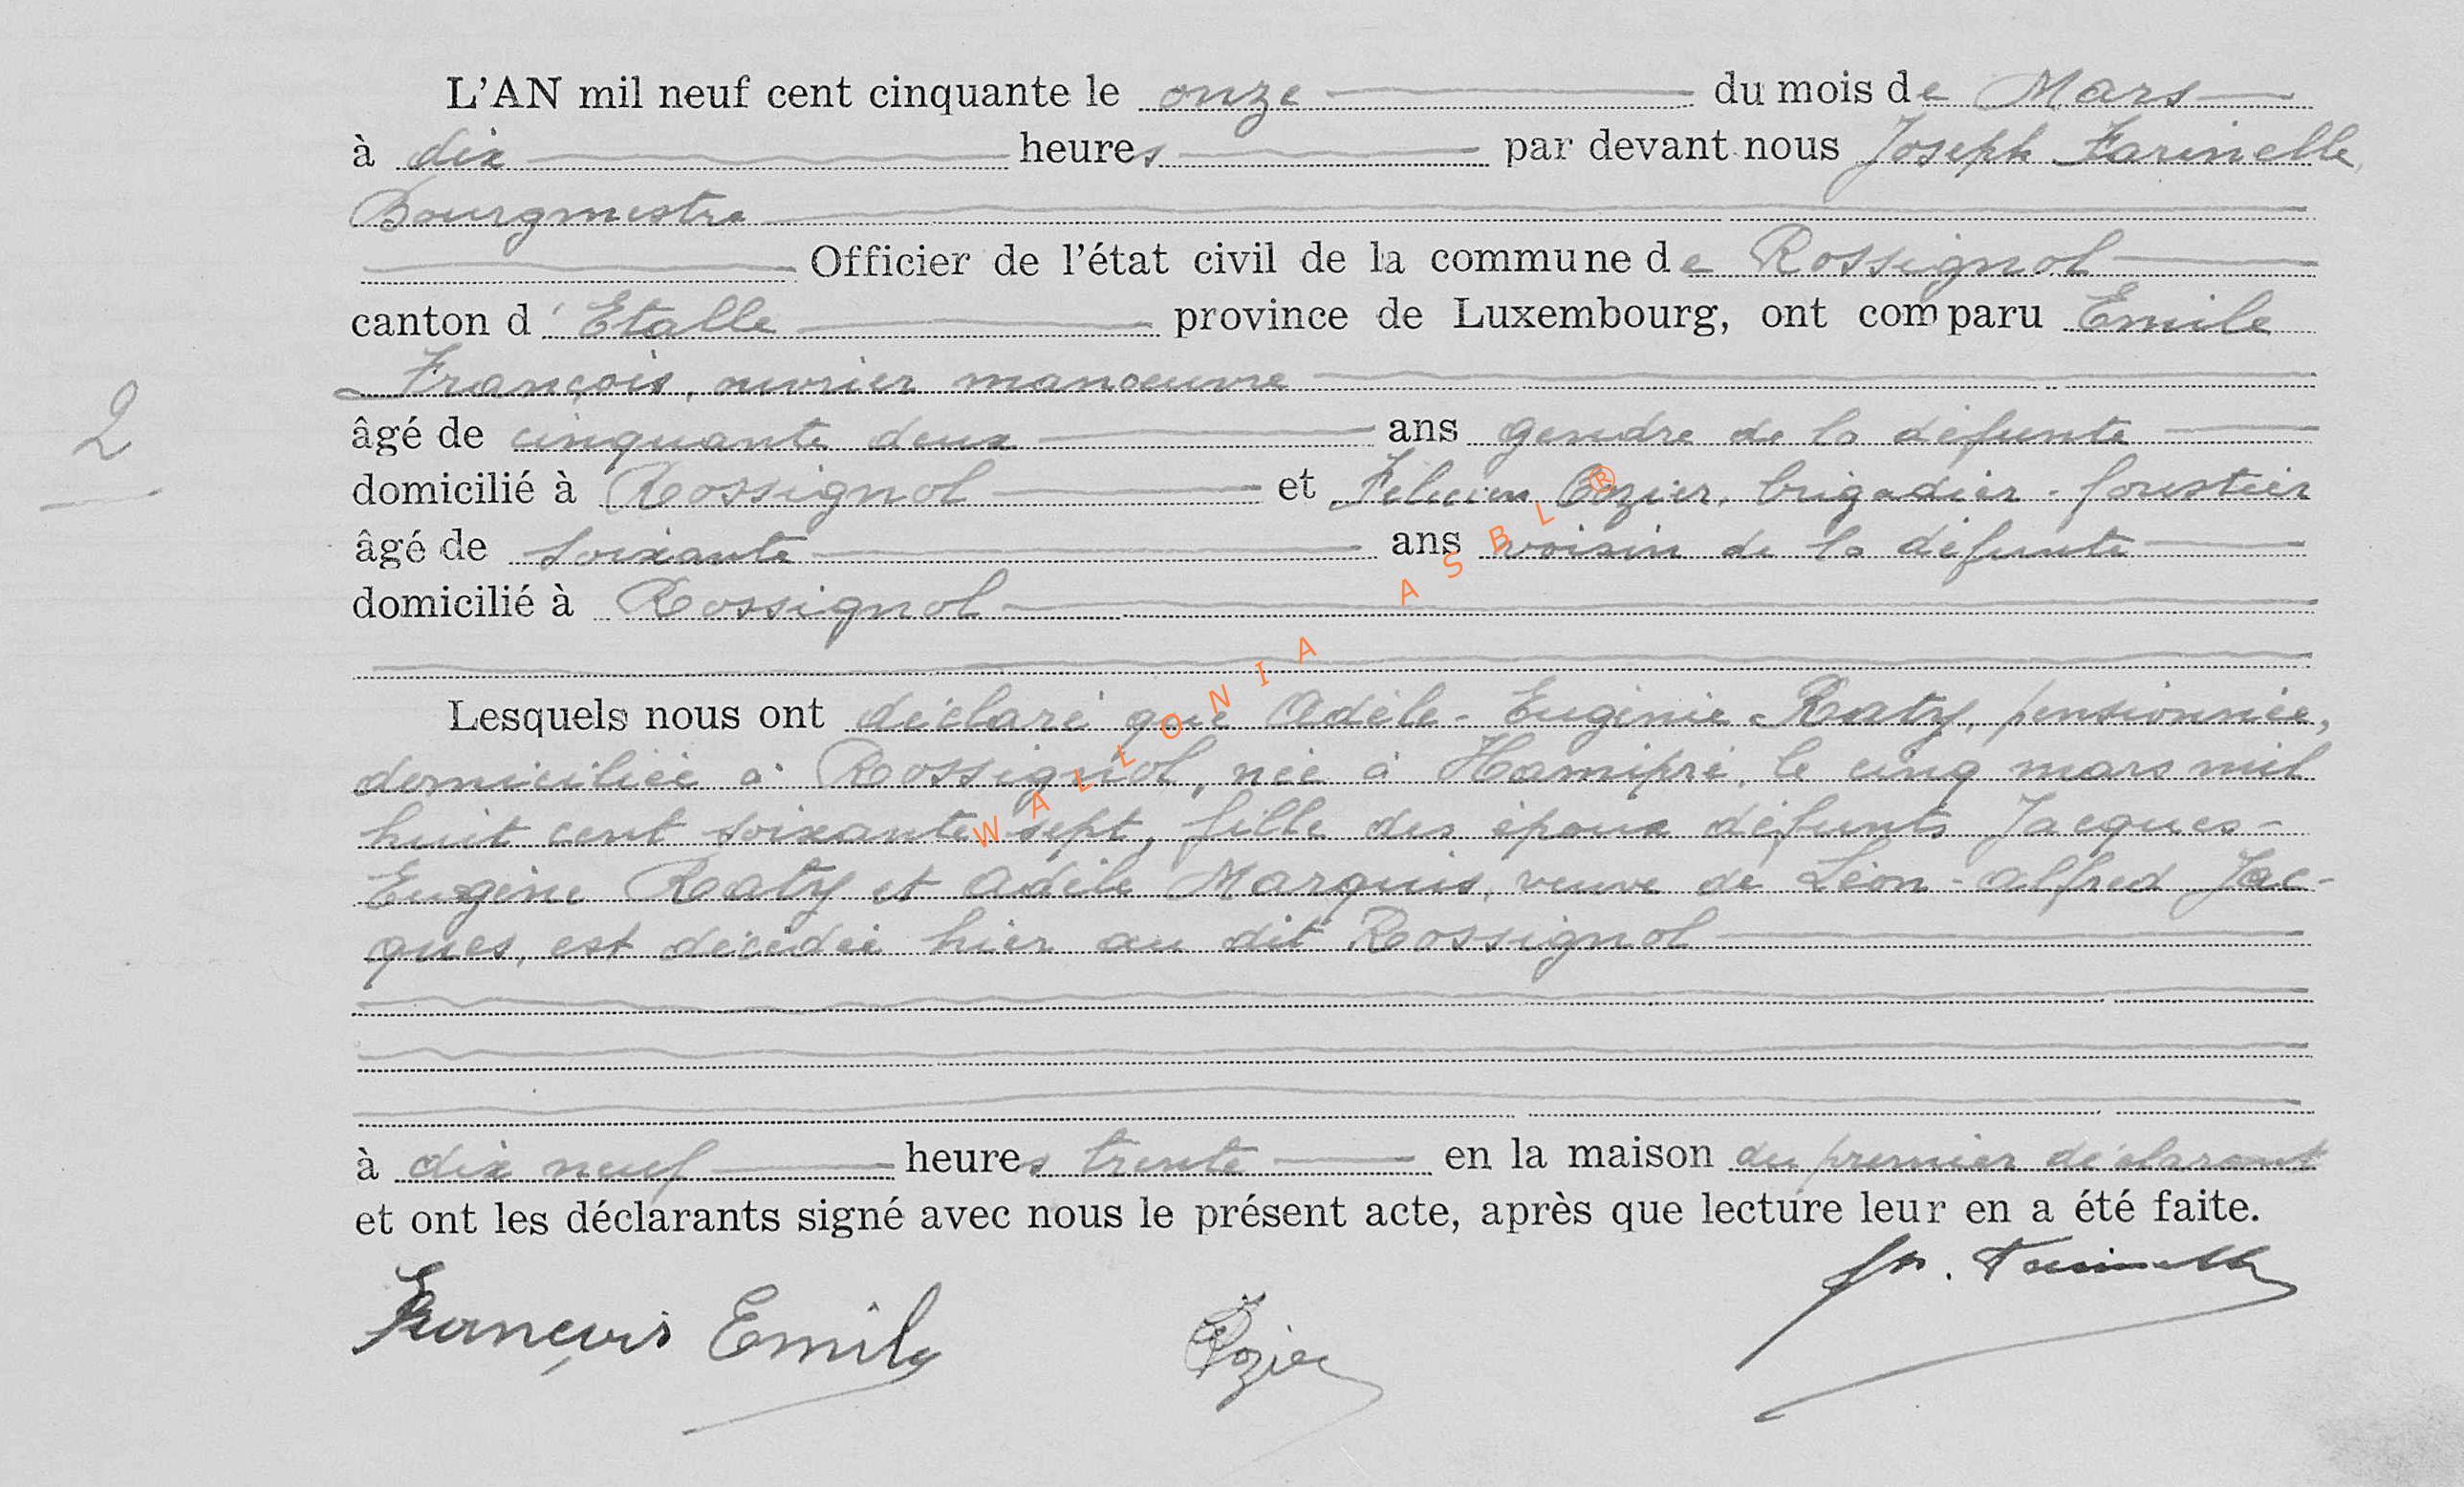 L'AN mil neuf cent cinquante le onze du mois de Mars
à dix heures par devant nous Joseph Farinelle,
Bourgmestre
Officier de l'état civil de la commune de Rossignol
canton d'Etalle province de Luxembourg, ont comparu Emile
François, ouvrier manoeuvre
2
âgé de cinquante deux ans gendre de la défunte
domicilié à Rossignol et Felicien Ozier, brigadier-forestier
âgé de soixante ans voisin de la défunte
domicilié à Rossignol
Lesquels nous ont déclaré que Adèle-Eugénie Raty, pensionnée,
domiciliée à Rossignol, née à Hamipré, le cinq mars mil
huit cent soixante sept, fille des époux défunts Jacques-
Eugène Raty et Adèle Marquis, veuve de Léon-Alfred Jac-
ques, est décédée hier au dit Rossignol
à dix neuf heures trente en la maison du premier déclarant
et ont les déclarants signé avec nous le présent acte, après que lecture leur en a été faite.
François Emile Ozier Jh. Farinelle
WALLONIA ASBL ®